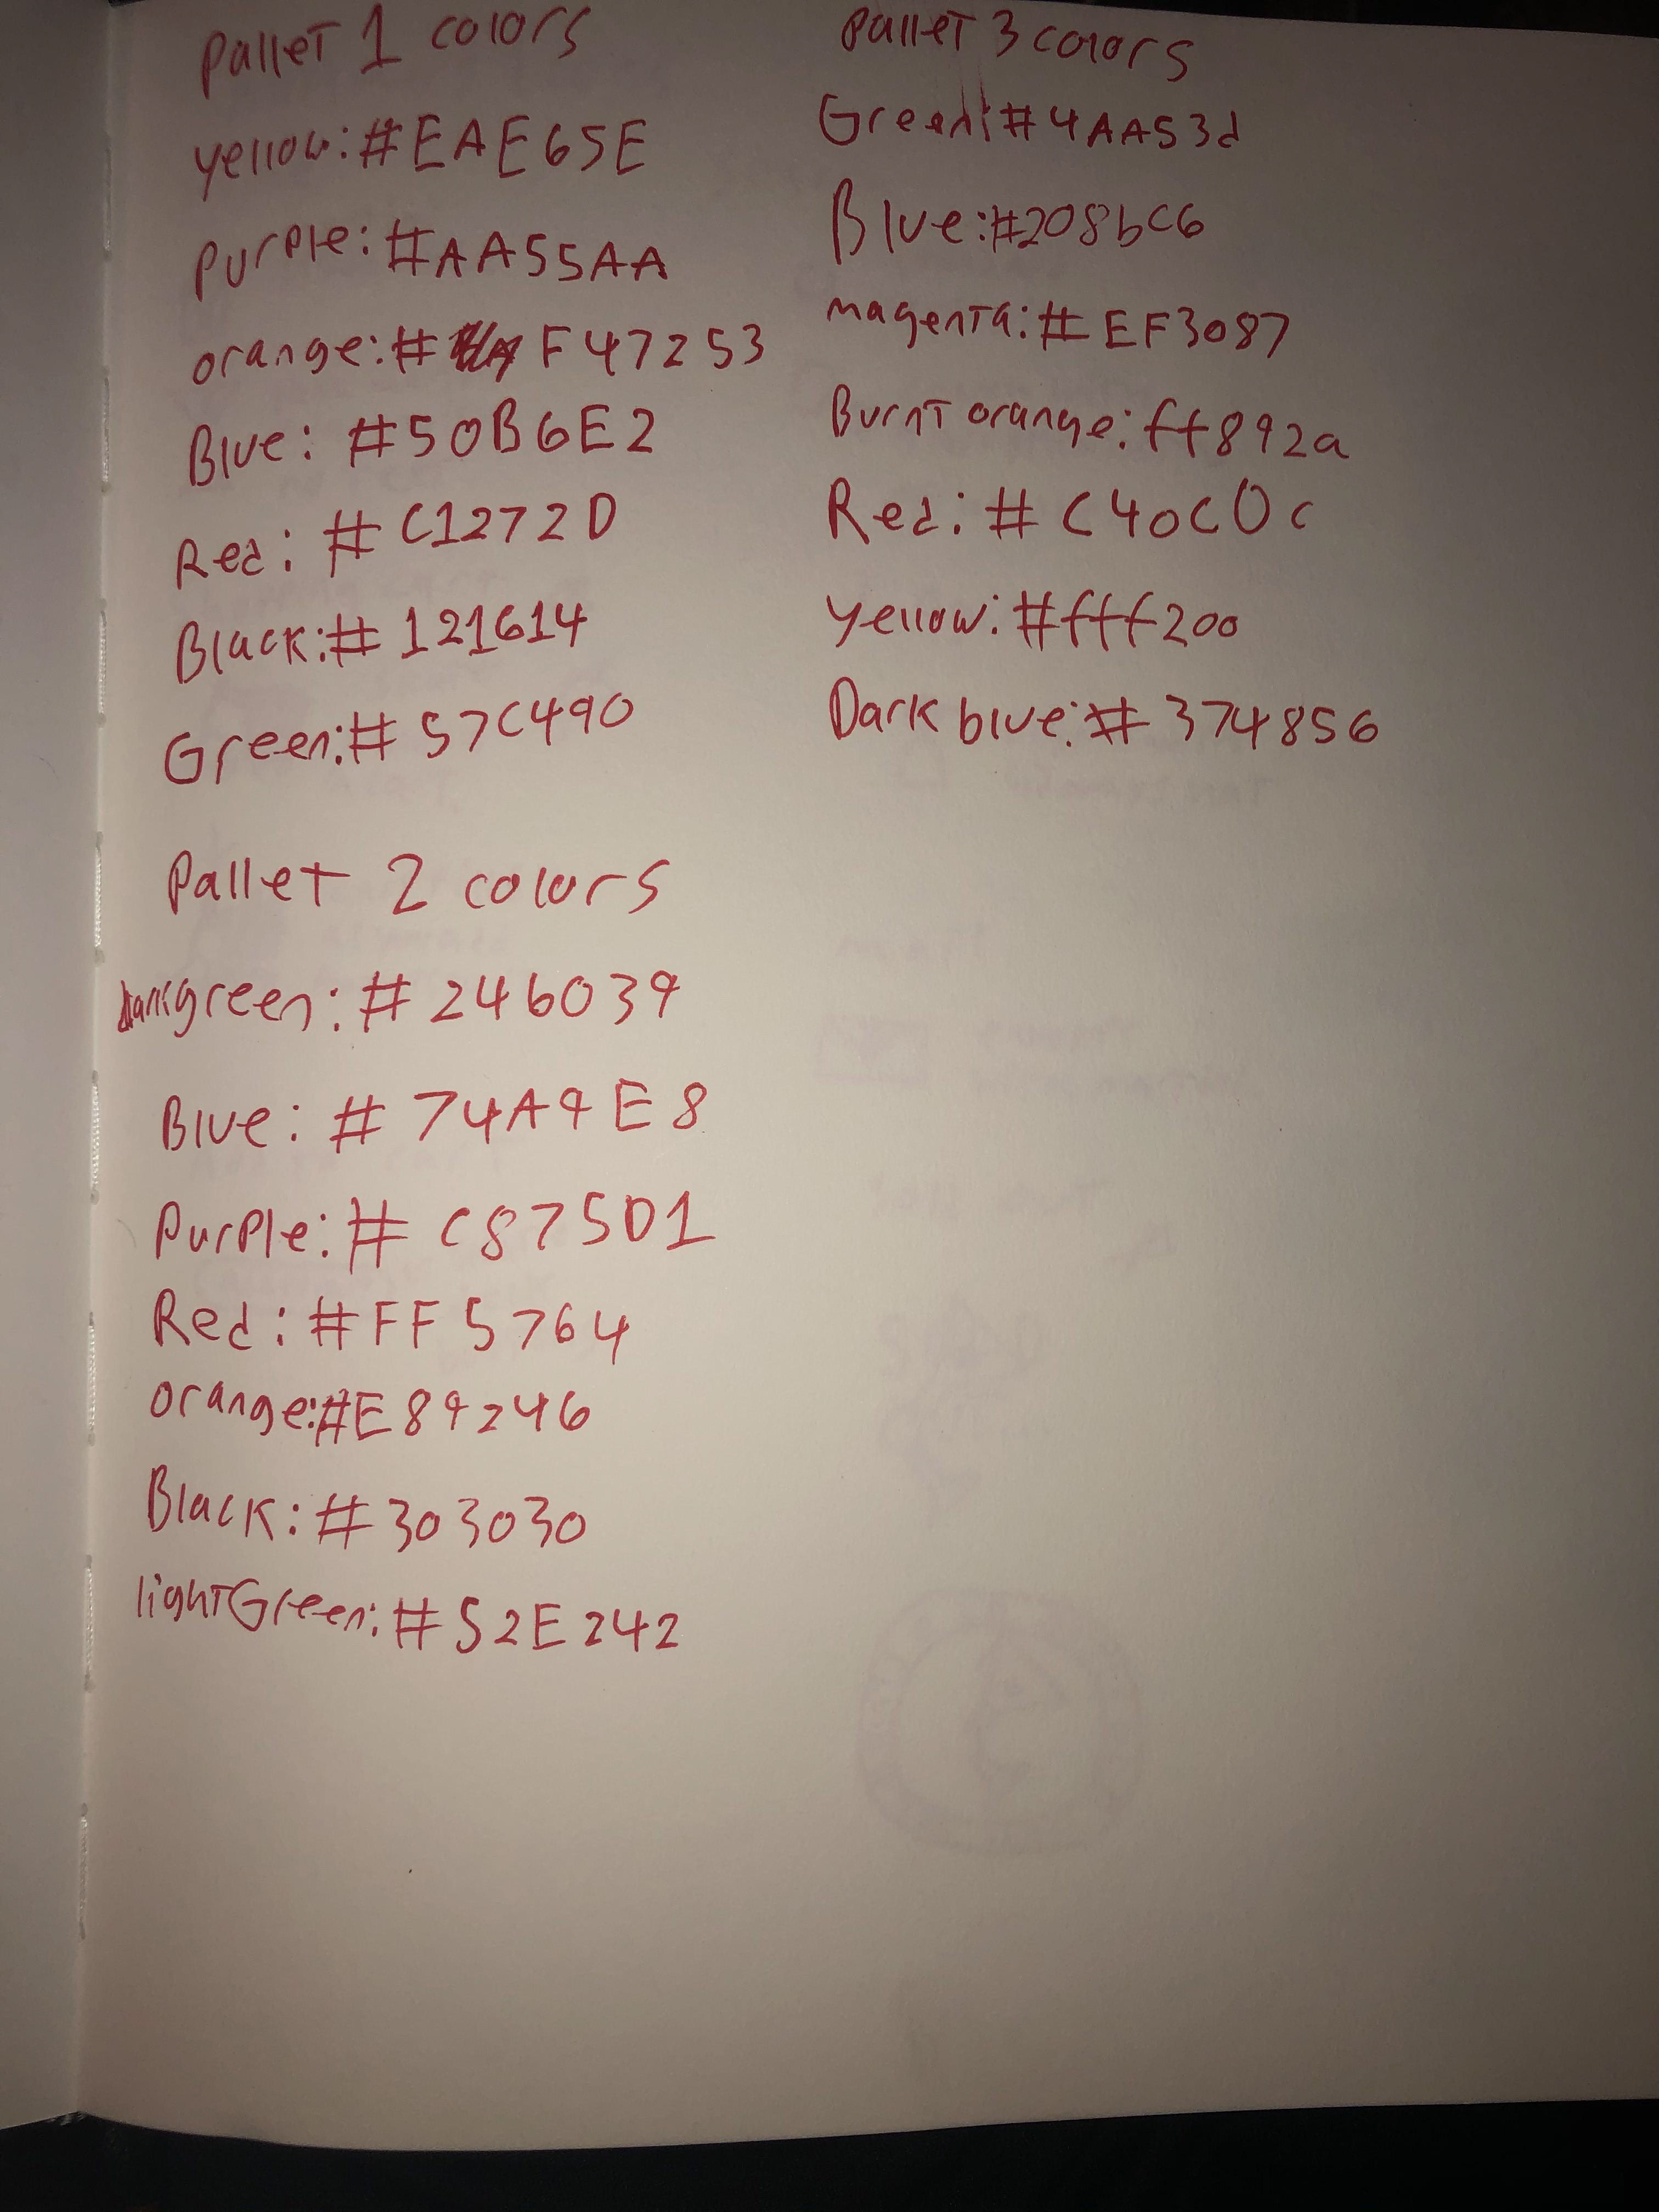 Pallet 1 colors
yellow: #EAE65E
Purple: #AA55AA
orange: # F47253
Blue: #50B6E2
Red: # C1272D
Black: # 121614
Green: # 57C490
Pallet 2 colors
darkgreen: # 246039
Blue: # 74A9E8
Purple: # C875D1
Red: #FF5764
orange: #E89246
Black: # 303030
lightGreen: # 52E242
Pallet 3 colors
Green: #4AA53d
Blue: #208bC6
magenta: # EF3087
Burnt orange: ff892a
Red: # C40C0c
yellow: #fff200
Dark blue: # 374856